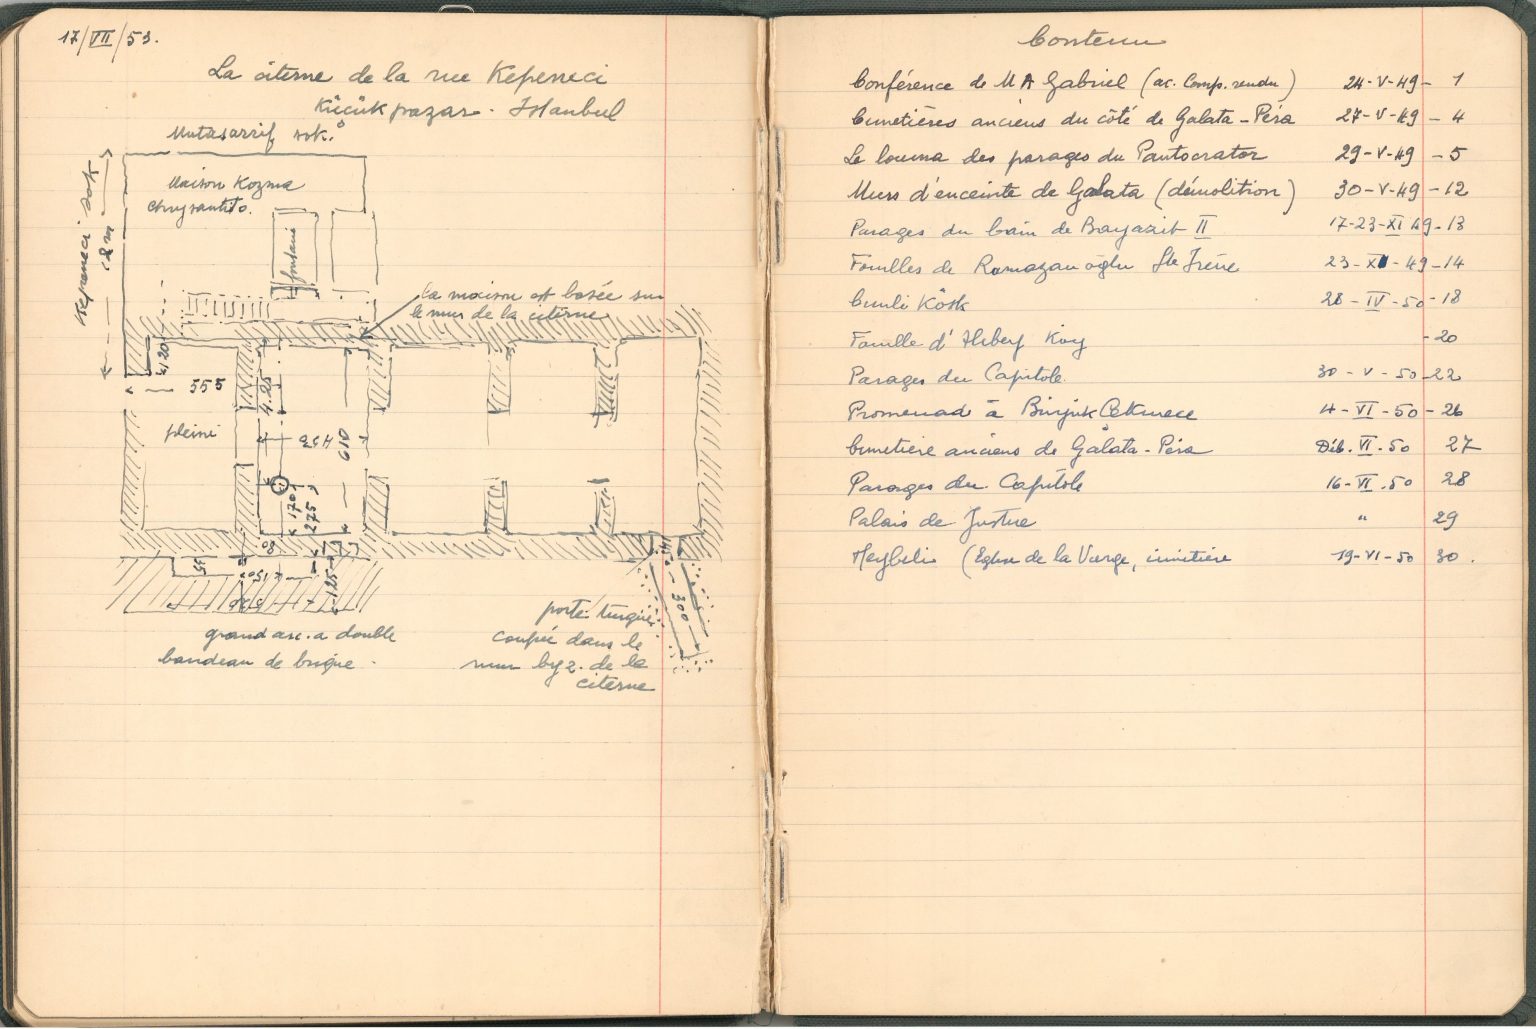 17/VII/53.
La citerne de la rue Kepeneci
Küçük pazar. Istanbul
Mutasarrif sok.
Kepeneci sok
12 m
Maison Kozma
La maison est basée sur
le mur de la citerne
120
555
4.25
pleine
610
170
275
80
55
125
300
grand arc. a double
bandeau de brique.
porte turque
coupée dans le
mur byz. de la
citerne
Contenu
Conférence de M A Gabriel (ac. Comp. rendu) 24-V-49- 1
Cimetières anciens du côté de Galata-Péra 27-V-49 - 4
Le louma des parages du Pantocrator 29-V-49 - 5
Murs d'enceinte de Galata (démolition) 30-V-49-12
Parages du bain de Bayazit II 17-23-XI 49-13
Fouilles de Ramazanoğlu Ste Irène 23-XI-49-14
Cinili Kösk 28-IV-50-18
Fouille d' Köy -20
Parages du Capitole. 30-V-50-22
Promenad à Büyük Cekmece 4-VI-50-26
Cimetiere anciens de Galata-Péra Déb. VI. 50 27
Parages du Capitole 16-VI.50 28
Palais de Justice " 29
Heybeli (Eglise de la Vierge, cimetière 19-VI-50 30.